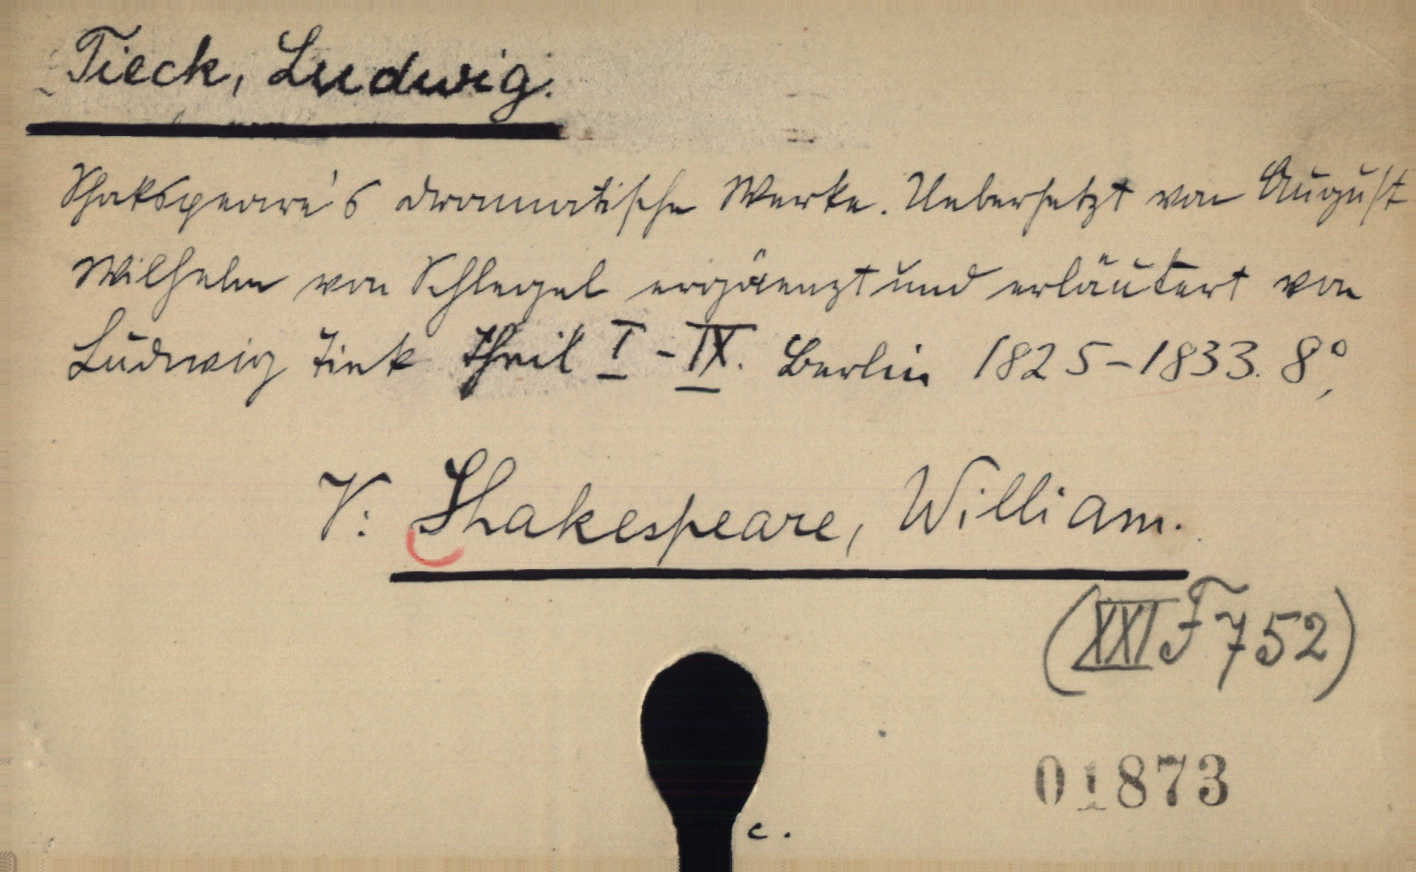 Tieck, Ludwig.
Shakspeare's dramatische Werke. Uebersetzt von August
Wilhelm von Schlegel ergäenzt und erläutert von
Ludwig Tiek Theil I - IX. Berlin 1825-1833. 8°,
V: Shakespeare, William.
(XXI F 752)
01873
c.